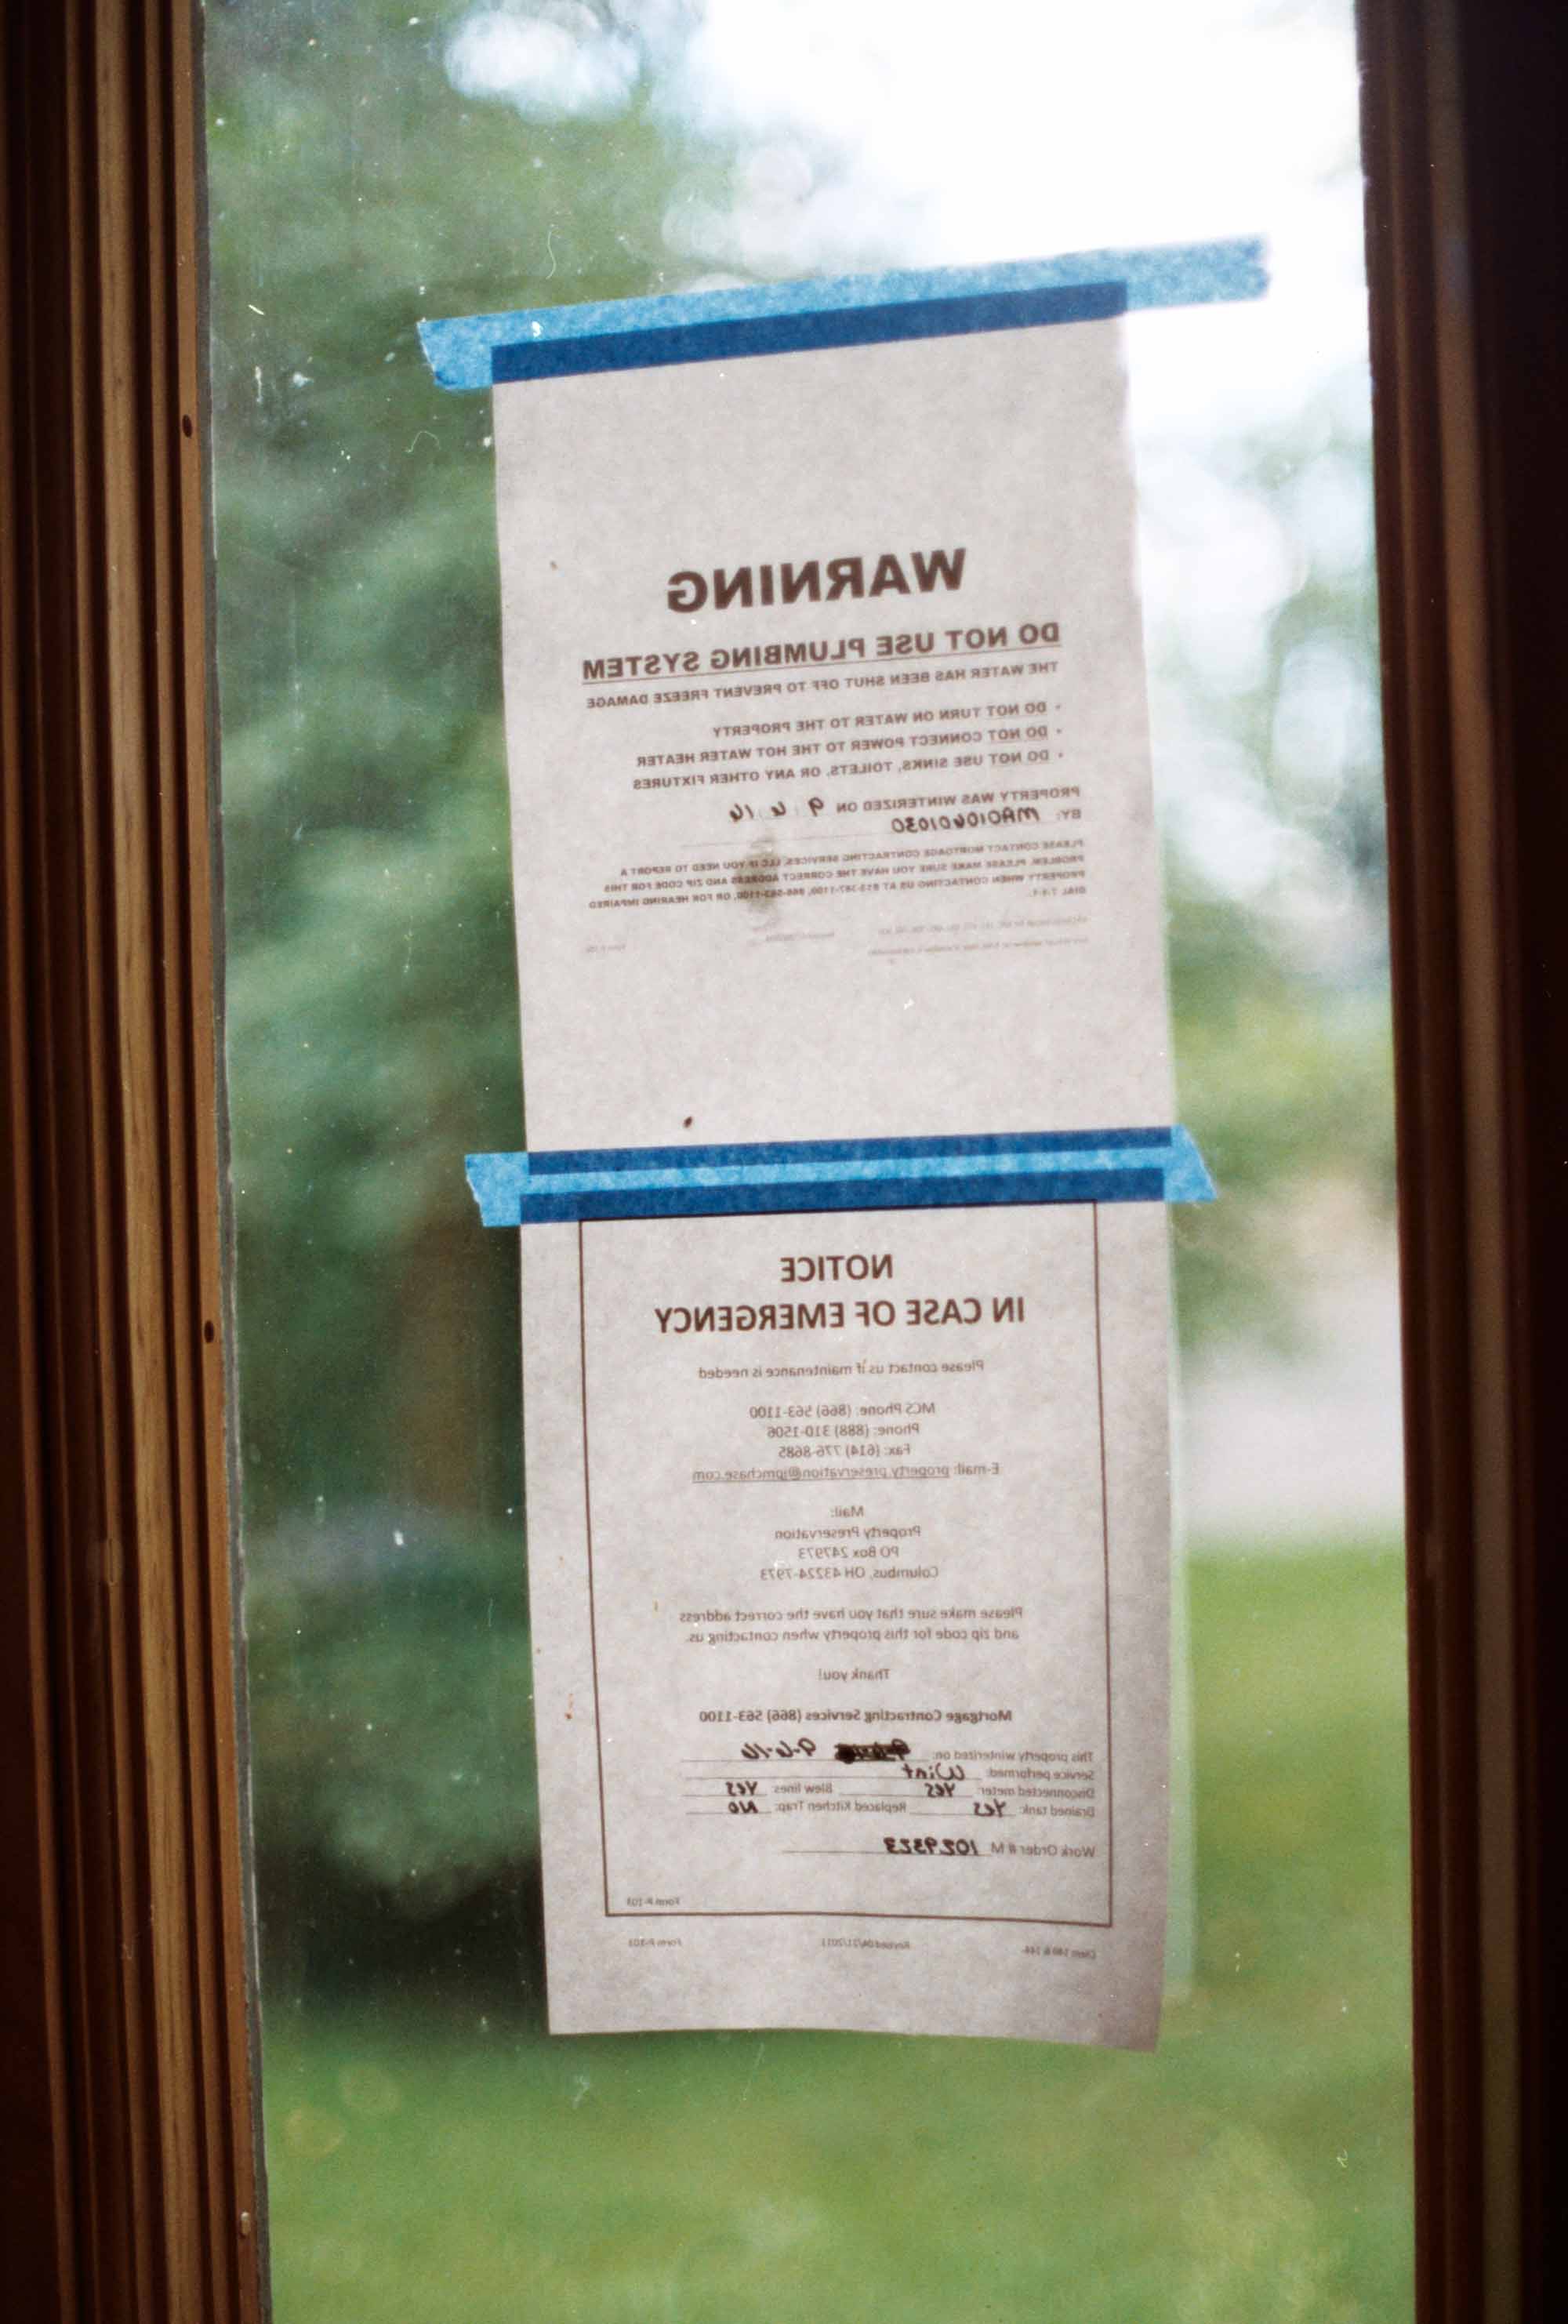 WARNING
DO NOT USE PLUMBING SYSTEM
THE WATER HAS BEEN SHUT OFF TO PREVENT FREEZE DAMAGE
• DO NOT TURN ON WATER TO THE PROPERTY
• DO NOT CONNECT POWER TO THE HOT WATER HEATER
• DO NOT USE SINKS, TOILETS, OR ANY OTHER FIXTURES
PROPERTY WAS WINTERIZED ON 9 6 16
BY: MA010601030
PLEASE CONTACT MORTGAGE CONTRACTING SERVICES, LLC IF YOU NEED TO REPORT A
PROBLEM. PLEASE MAKE SURE YOU HAVE THE CORRECT ADDRESS AND ZIP CODE FOR THIS
PROPERTY WHEN CONTACTING US AT 813-387-1100, 866-563-1100, OR FOR HEARING IMPAIRED
DIAL 7-1-1.
NOTICE
IN CASE OF EMERGENCY
Please contact us if maintenance is needed
MCS Phone: (866) 563-1100
Phone: (888) 310-1506
Fax: (614) 776-8685
E-mail: property.preservation@jpmchase.com
Mail:
Property Preservation
PO Box 247973
Columbus, OH 43224-7973
Please make sure that you have the correct address
and zip code for this property when contacting us.
Thank you!
Mortgage Contracting Services (866) 563-1100
This property winterized on: 9-6-16
Service performed: Wint
Disconnected meter: Yes Blew lines: Yes
Drained tank: Yes Replaced Kitchen Trap: No
Work Order # M 1029323
Form P-103
Client 140 & 144 Revised 04/21/2011 Form P-103